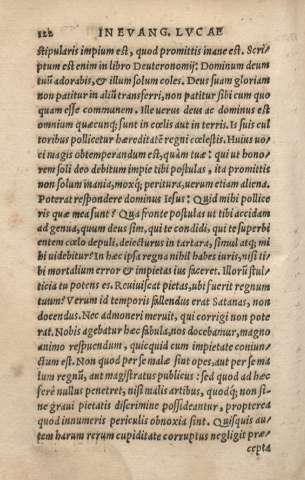 122 IN EVANG. LVCAE
stipularis impium est, quod promittis inane est. Scri⸗
ptum est enim in libro Deuteronomij: Dominum deum
tuũ adorabis, & illum solum coles. Deus suam gloriam
non patitur in aliũ transferri, non patitur sibi cum quo
quam esse communem. Ille uerus deus ac dominus est
omnium quæcunq; sunt in cœlis aut in terris. Is suis cul
toribus pollicetur hæreditatẽ regni cœlestis. Huius uo⸗
ci magis obtemperandum est, quàm tuæ: qui ut hono⸗
rem soli deo debitum impie tibi postulas, ita promittis
non solum inania, moxq; peritura, uerum etiam aliena.
Poterat respondere dominus Iesus: Quid mihi pollice
ris quæ mea sunt? Qua fronte postulas ut tibi accidam
ad genua, quum deus sim, qui te condidi, qui te superbi
entem cœlo depuli, deiecturus in tartara, simul atq; mi
hi uidebitur? In hæc ipsa regna nihil habes iuris, nisi ti
bi mortalium error & impietas ius faceret. Illorũ stul⸗
ticia tu potens es. Reuiuiscat pietas, ubi fuerit regnum
tuum? Verum id temporis fallendus erat Satanas, non
docendus. Nec admoneri meruit, qui corrigi non pote
rat. Nobis agebatur hæc fabula, nos docebamur, magno
animo respuendum, quicquid cum impietate coniun⸗
ctum est. Non quod per se malæ sint opes, aut per se ma
lum regnũ, aut magistratus publicus: sed quod ad hæc
ferè nullus penetret, nisi malis artibus, quodq; non si⸗
ne graui pietatis discrimine possideantur, propterea
quod innumeris periculis obnoxia sint. Quisquis au⸗
tem harum rerum cupiditate corruptus negligit præ⸗
cepta